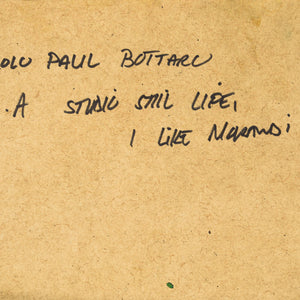 OLO PAUL BOTTARO
. A STUDIO STILL LIFE,
I LIKE MORANDI